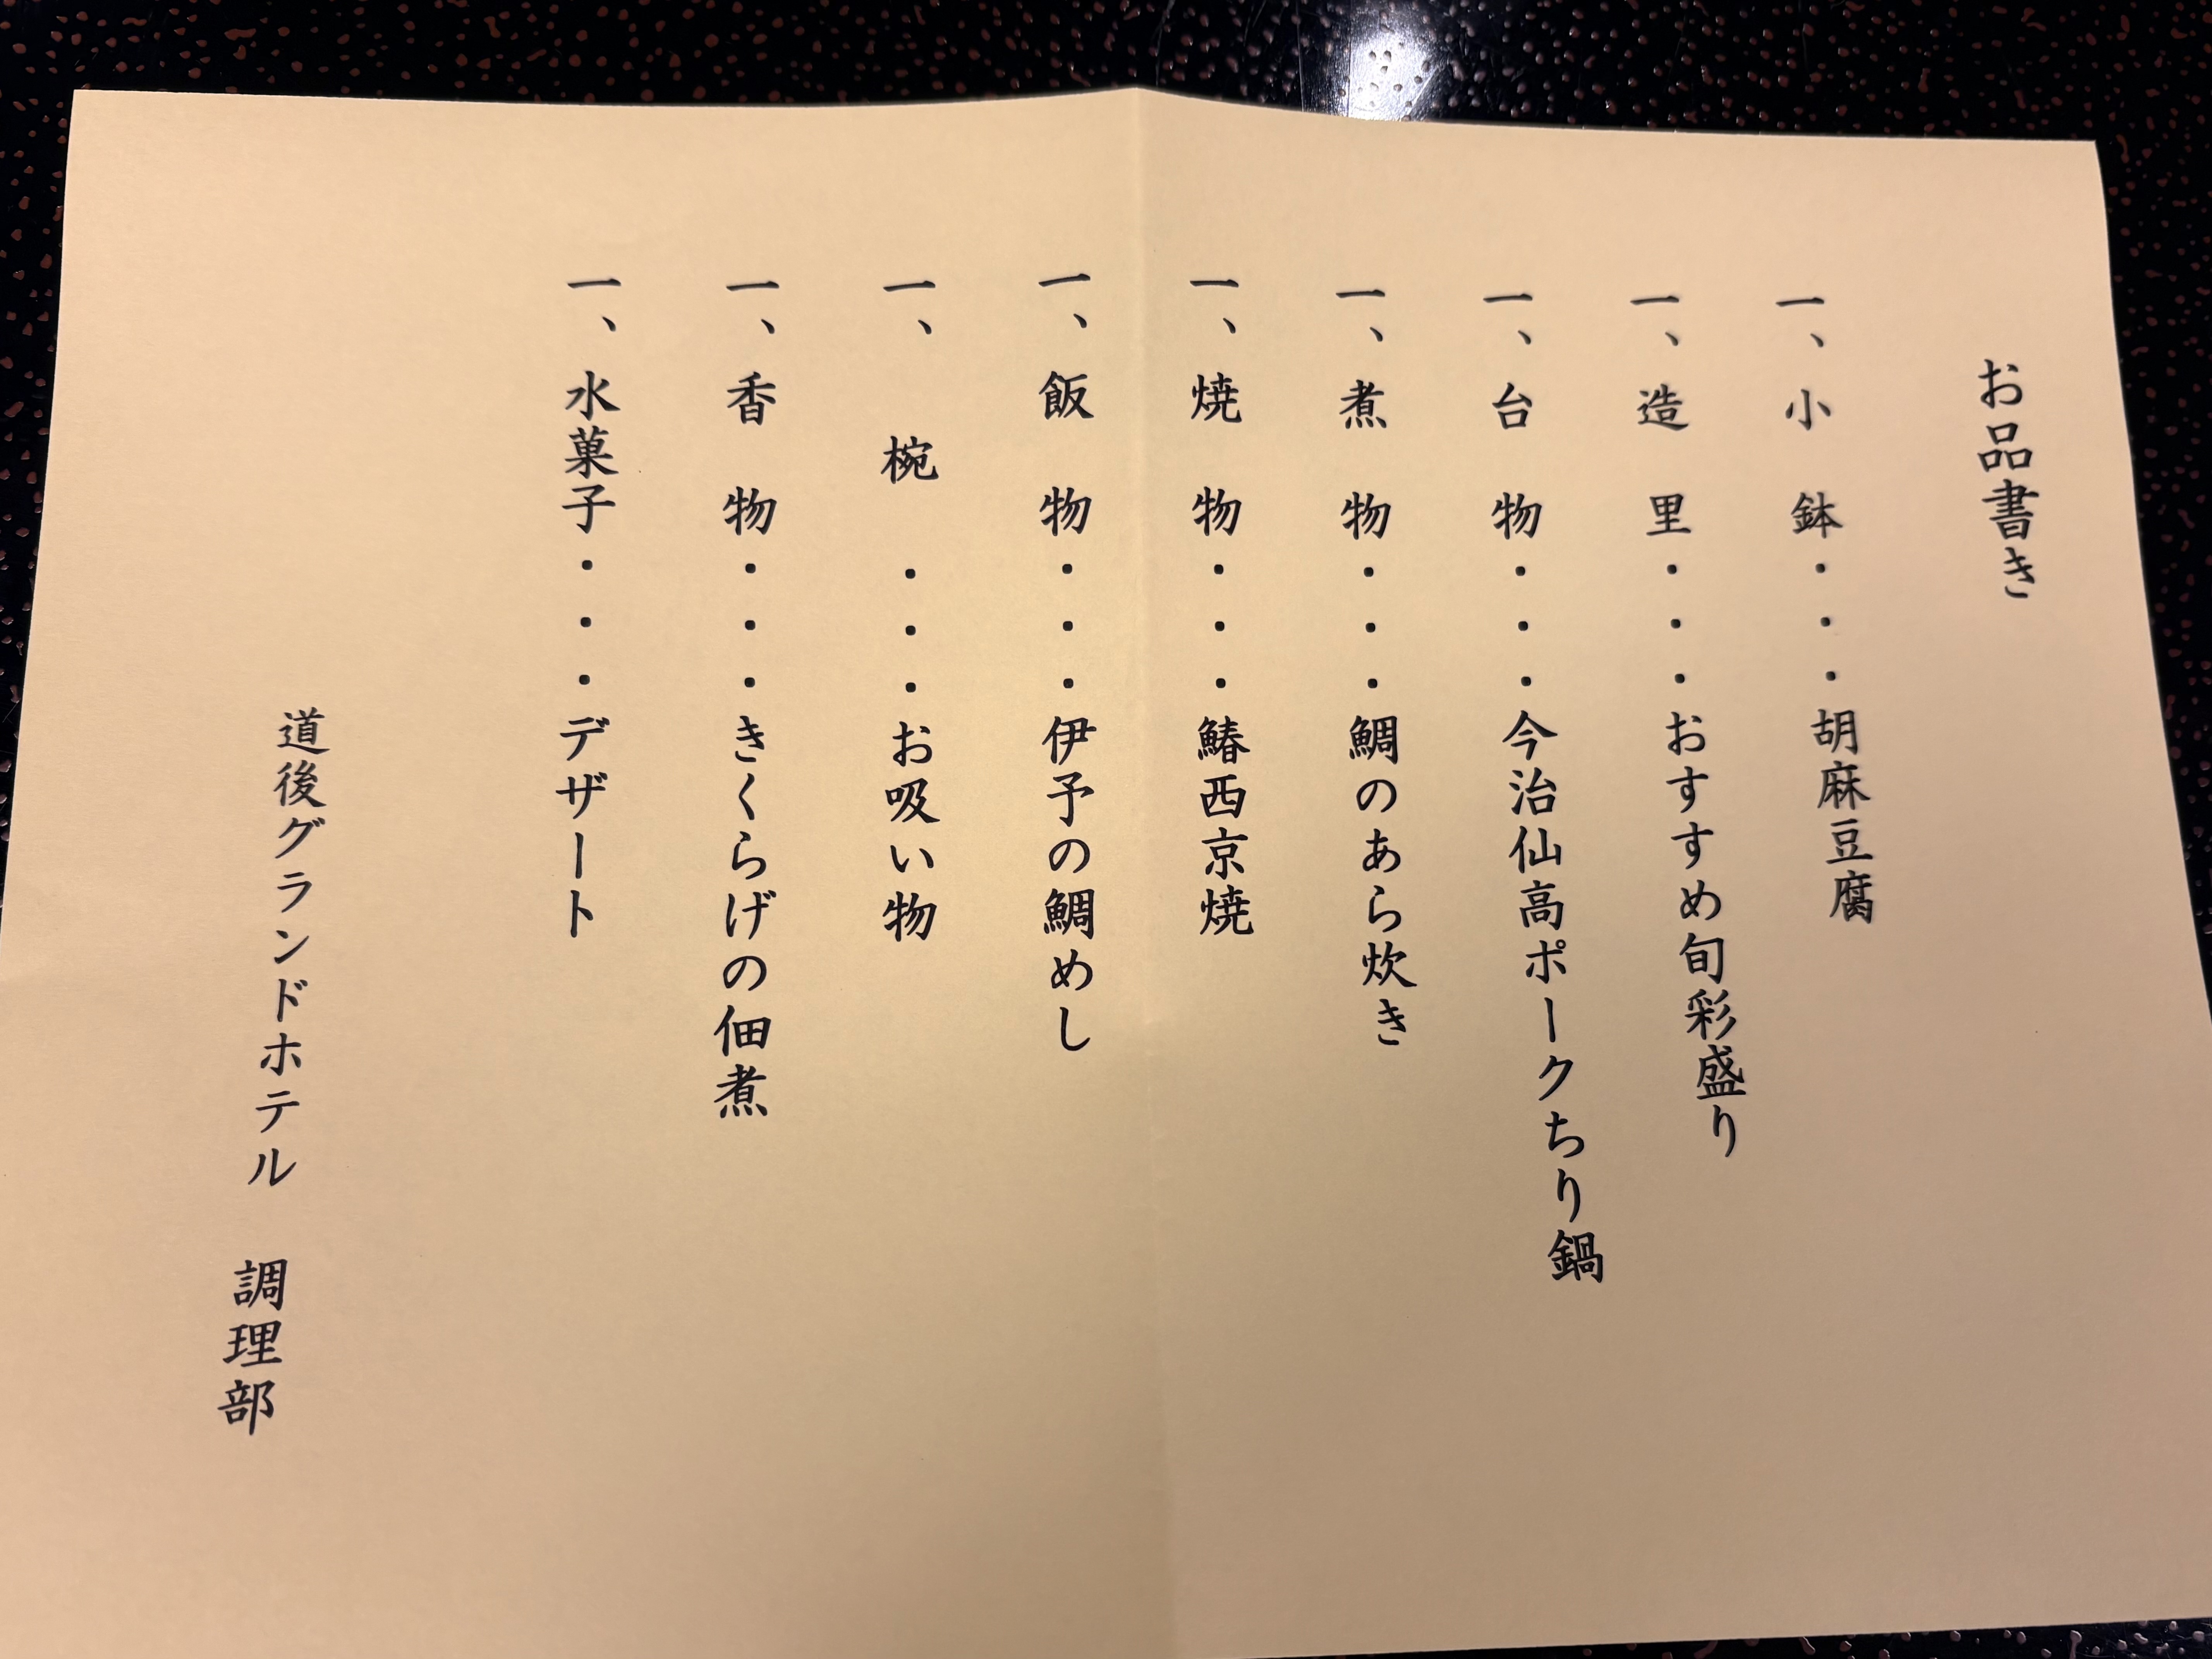 お品書き
一、小　鉢・・・胡麻豆腐
一、造　里・・・おすすめ旬彩盛り
一、台　物・・・今治仙高ポークちり鍋
一、煮　物・・・鯛のあら炊き
一、焼　物・・・鰆西京焼
一、飯　物・・・伊予の鯛めし
一、　椀　・・・お吸い物
一、香　物・・・きくらげの佃煮
一、水菓子・・・デザート
道後グランドホテル　調理部